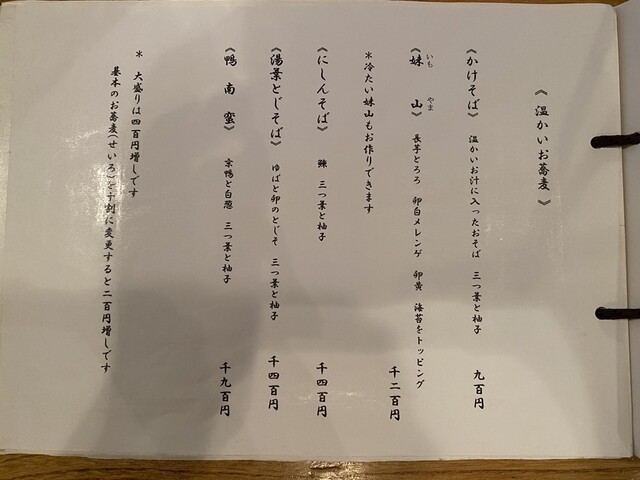 《温かいお蕎麦》
《かけそば》 温かいお汁に入ったおそば 三つ葉と柚子 九百円
《妹山》 長芋とろろ 卵白メレンゲ 卵黄 海苔をトッピング
いも やま
千二百円
＊冷たい妹山もお作りできます
《にしんそば》 鰊 三つ葉と柚子 千四百円
《湯葉とじそば》 ゆばと卵のとじそ 三つ葉と柚子 千四百円
《鴨南蛮》 京鴨と白葱 三つ葉と柚子 千九百円
＊ 大盛りは四百円増しです
基本のお蕎麦(せいろ)を十割に変更すると二百円増しです